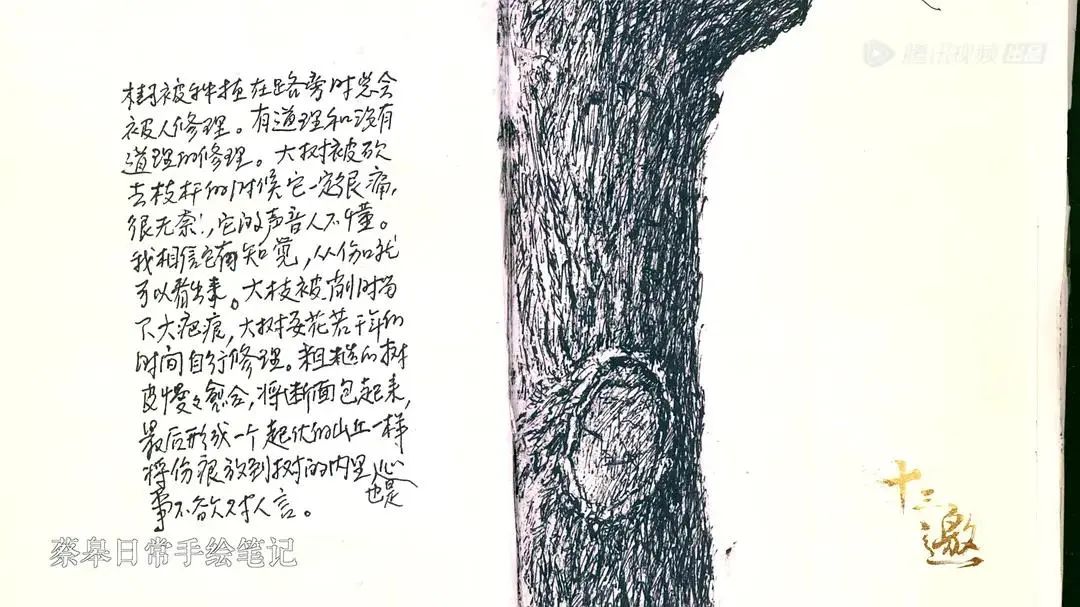 腾讯视频 出品
树被种植在路旁时总会
被人修理。有道理和没有
道理的修理。大树被砍
去枝杆的时候它一定很痛,
很无奈!,它的声音人不懂。
我相信它有知觉,从伤口就
可以看出来。大枝被削时留
下大疤痕,大树要花若干年的
时间自行修理。粗糙的树
皮慢々愈合,将断面包起来,
最后形成一个起伏的山丘一样
将伤痕放到树的内里,心
也是
事不欲对人言。
蔡皋日常手绘笔记
十三邀